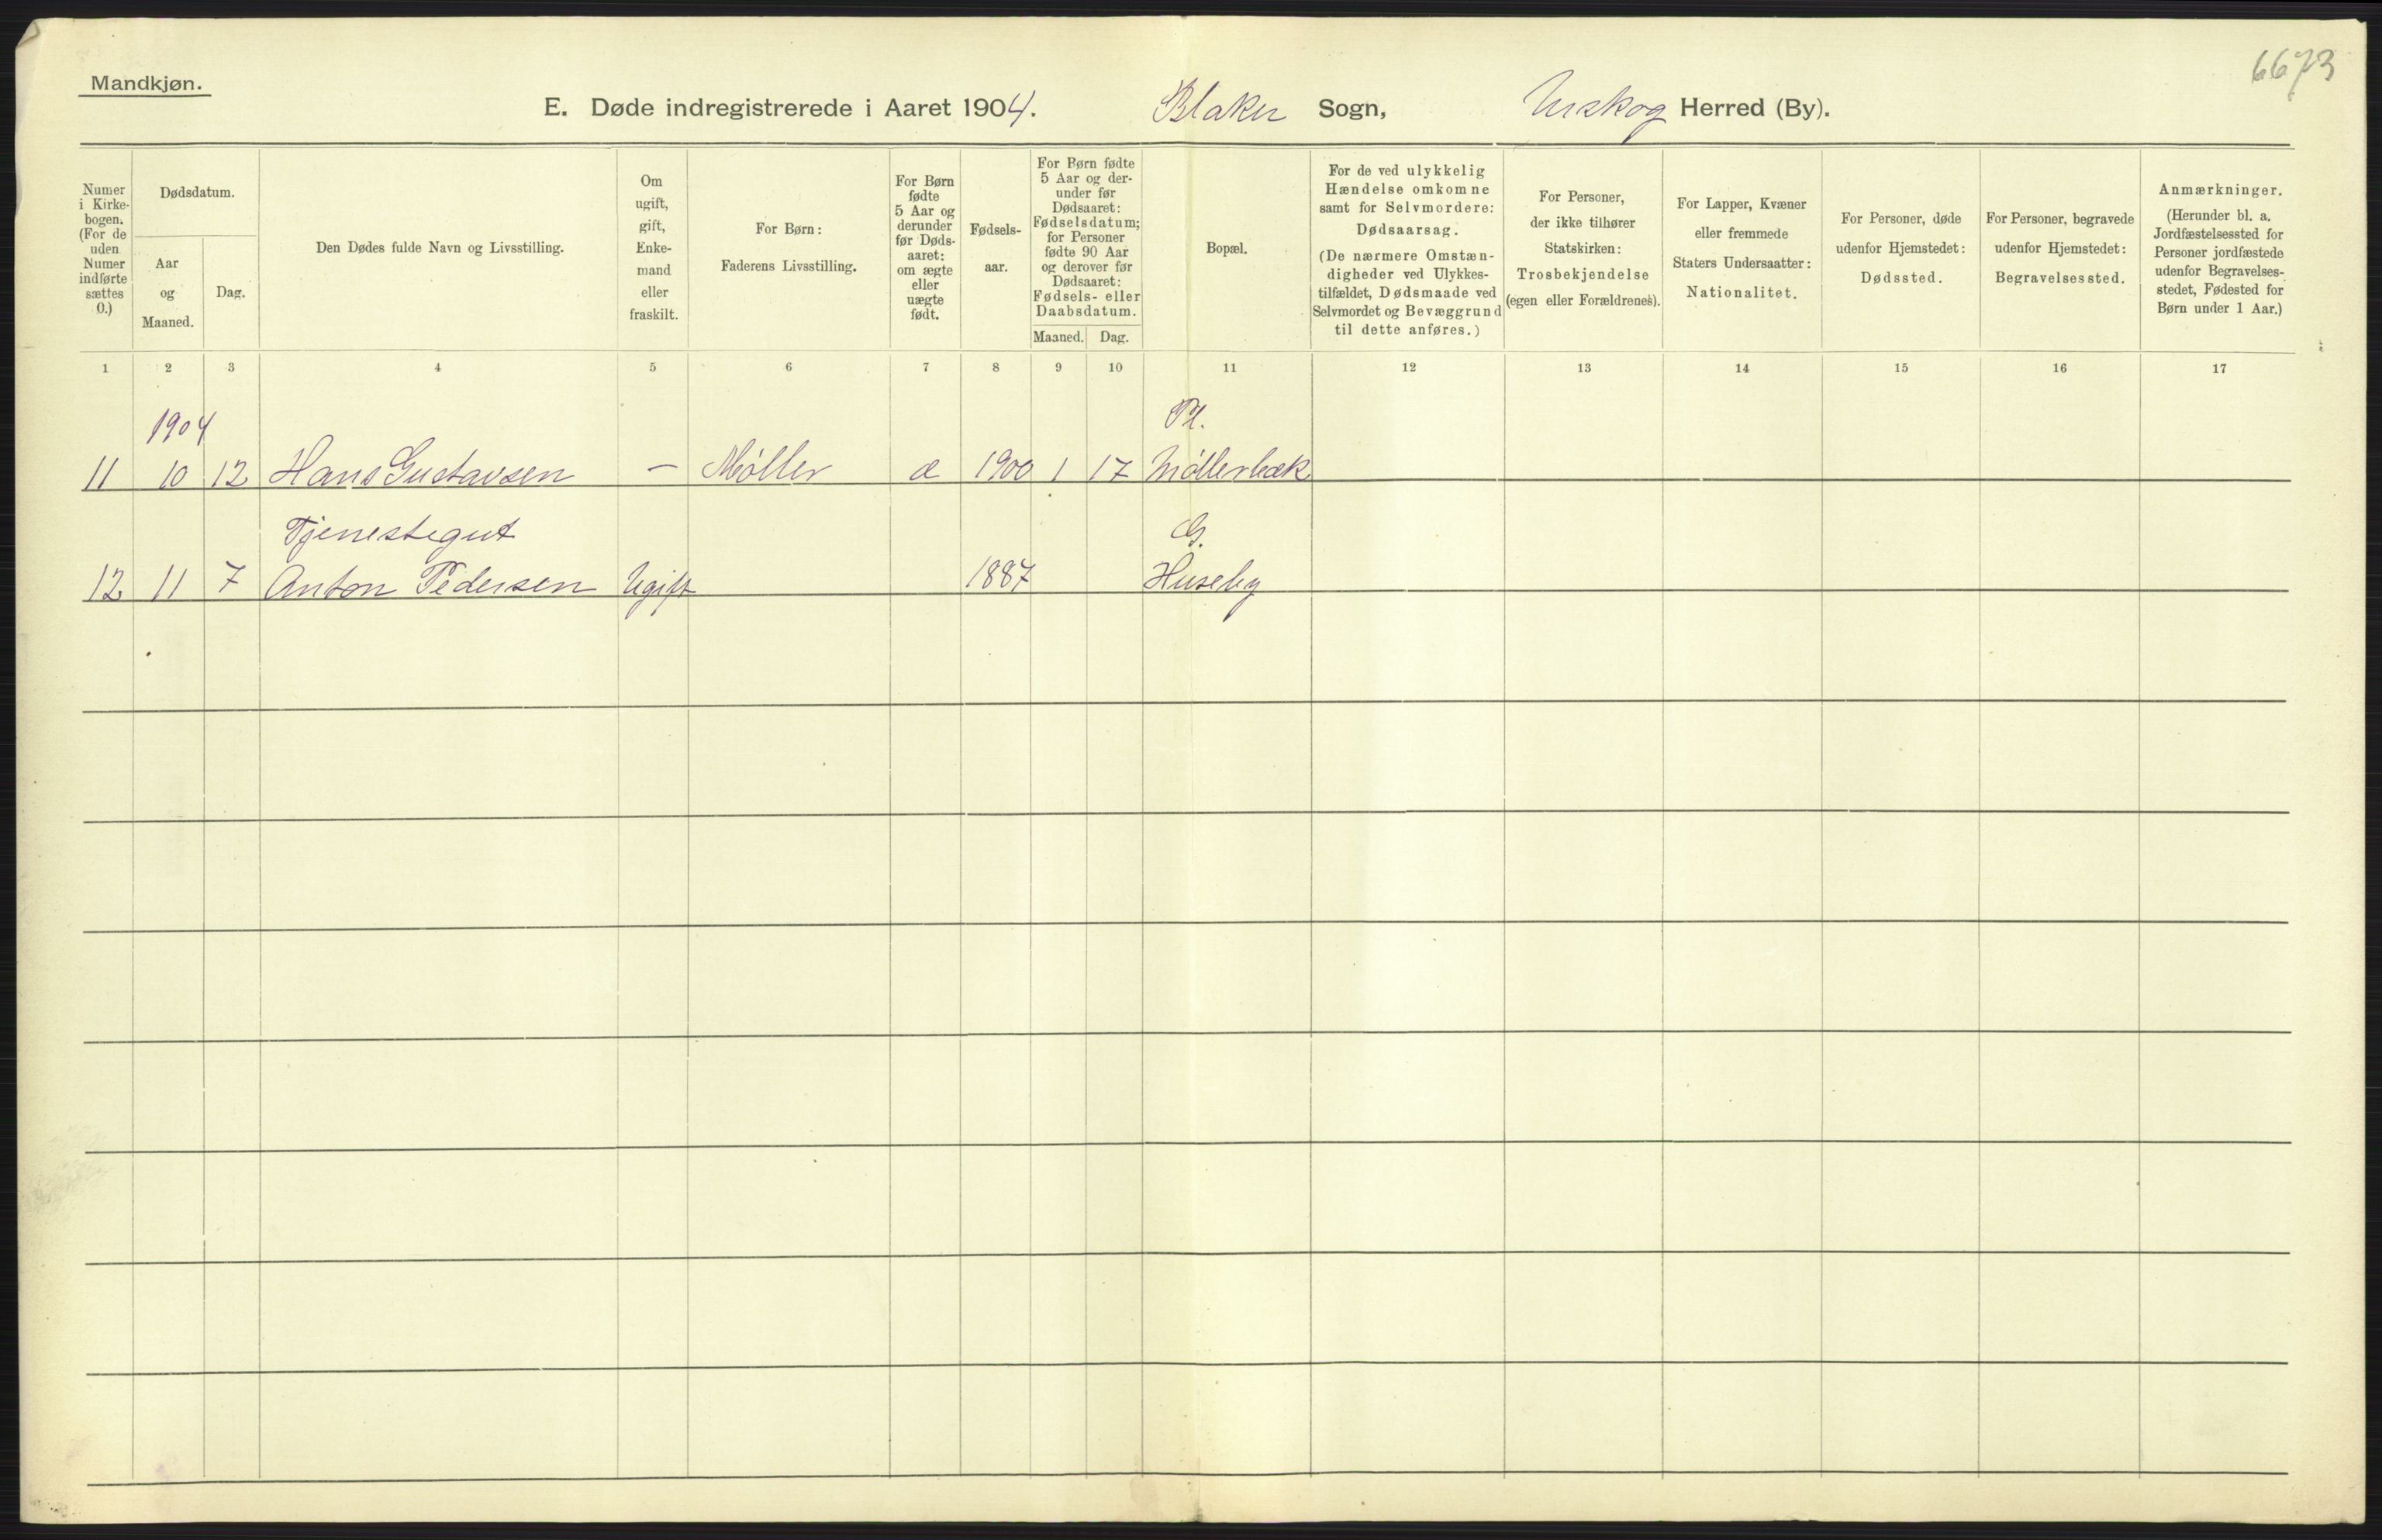 6673
Mandkjøn.
E. Døde indregistrerede i Aaret 1904. Blaker Sogn, Urskog Herred (By).
Numer i Kirke-bogen. (For de uden Numer indførte sættes 0.)
Dødsdatum.
Aar og Maaned.
Dag.
Den Dødes fulde Navn og Livsstilling.
Om ugift, gift, Enke-mand eller fraskilt.
For Børn: Faderens Livsstilling.
For Børn fødte 5 Aar og derunder før Døds-aaret: om ægte eller uægte født.
Fødsels-aar.
For Børn fødte 5 Aar og der-under før Dødsaaret: Fødselsdatum; for Personer fødte 90 Aar og derover før Dødsaaret: Fødsels- eller Daabsdatum.
Maaned. Dag.
Bopæl.
For de ved ulykkelig Hændelse omkomne samt for Selvmordere: Dødsaarsag. (De nærmere Omstæn-digheder ved Ulykkes-tilfældet, Dødsmaade ved Selvmordet og Bevæggrund til dette anføres.)
For Personer, der ikke tilhører Statskirken: Trosbekjendelse (egen eller Forældrenes).
For Lapper, Kvæner eller fremmede Staters Undersaatter: Nationalitet.
For Personer, døde udenfor Hjemstedet: Dødssted.
For Personer, begravede udenfor Hjemstedet: Begravelsessted.
Anmærkninger. (Herunder bl. a. Jordfæstelsessted for Personer jordfæstede udenfor Begravelses-stedet, Fødested for Børn under 1 Aar.)
1 2 3 4 5 6 7 8 9 10 11 12 13 14 15 16 17
1904 Pl.
11 10 12 Hans Gustavsen — Møller æ 1900 1 17 Møllerbæk
Tjenestegut G.
12 11 7 Anton Pedersen Ugift 1887 Huseby